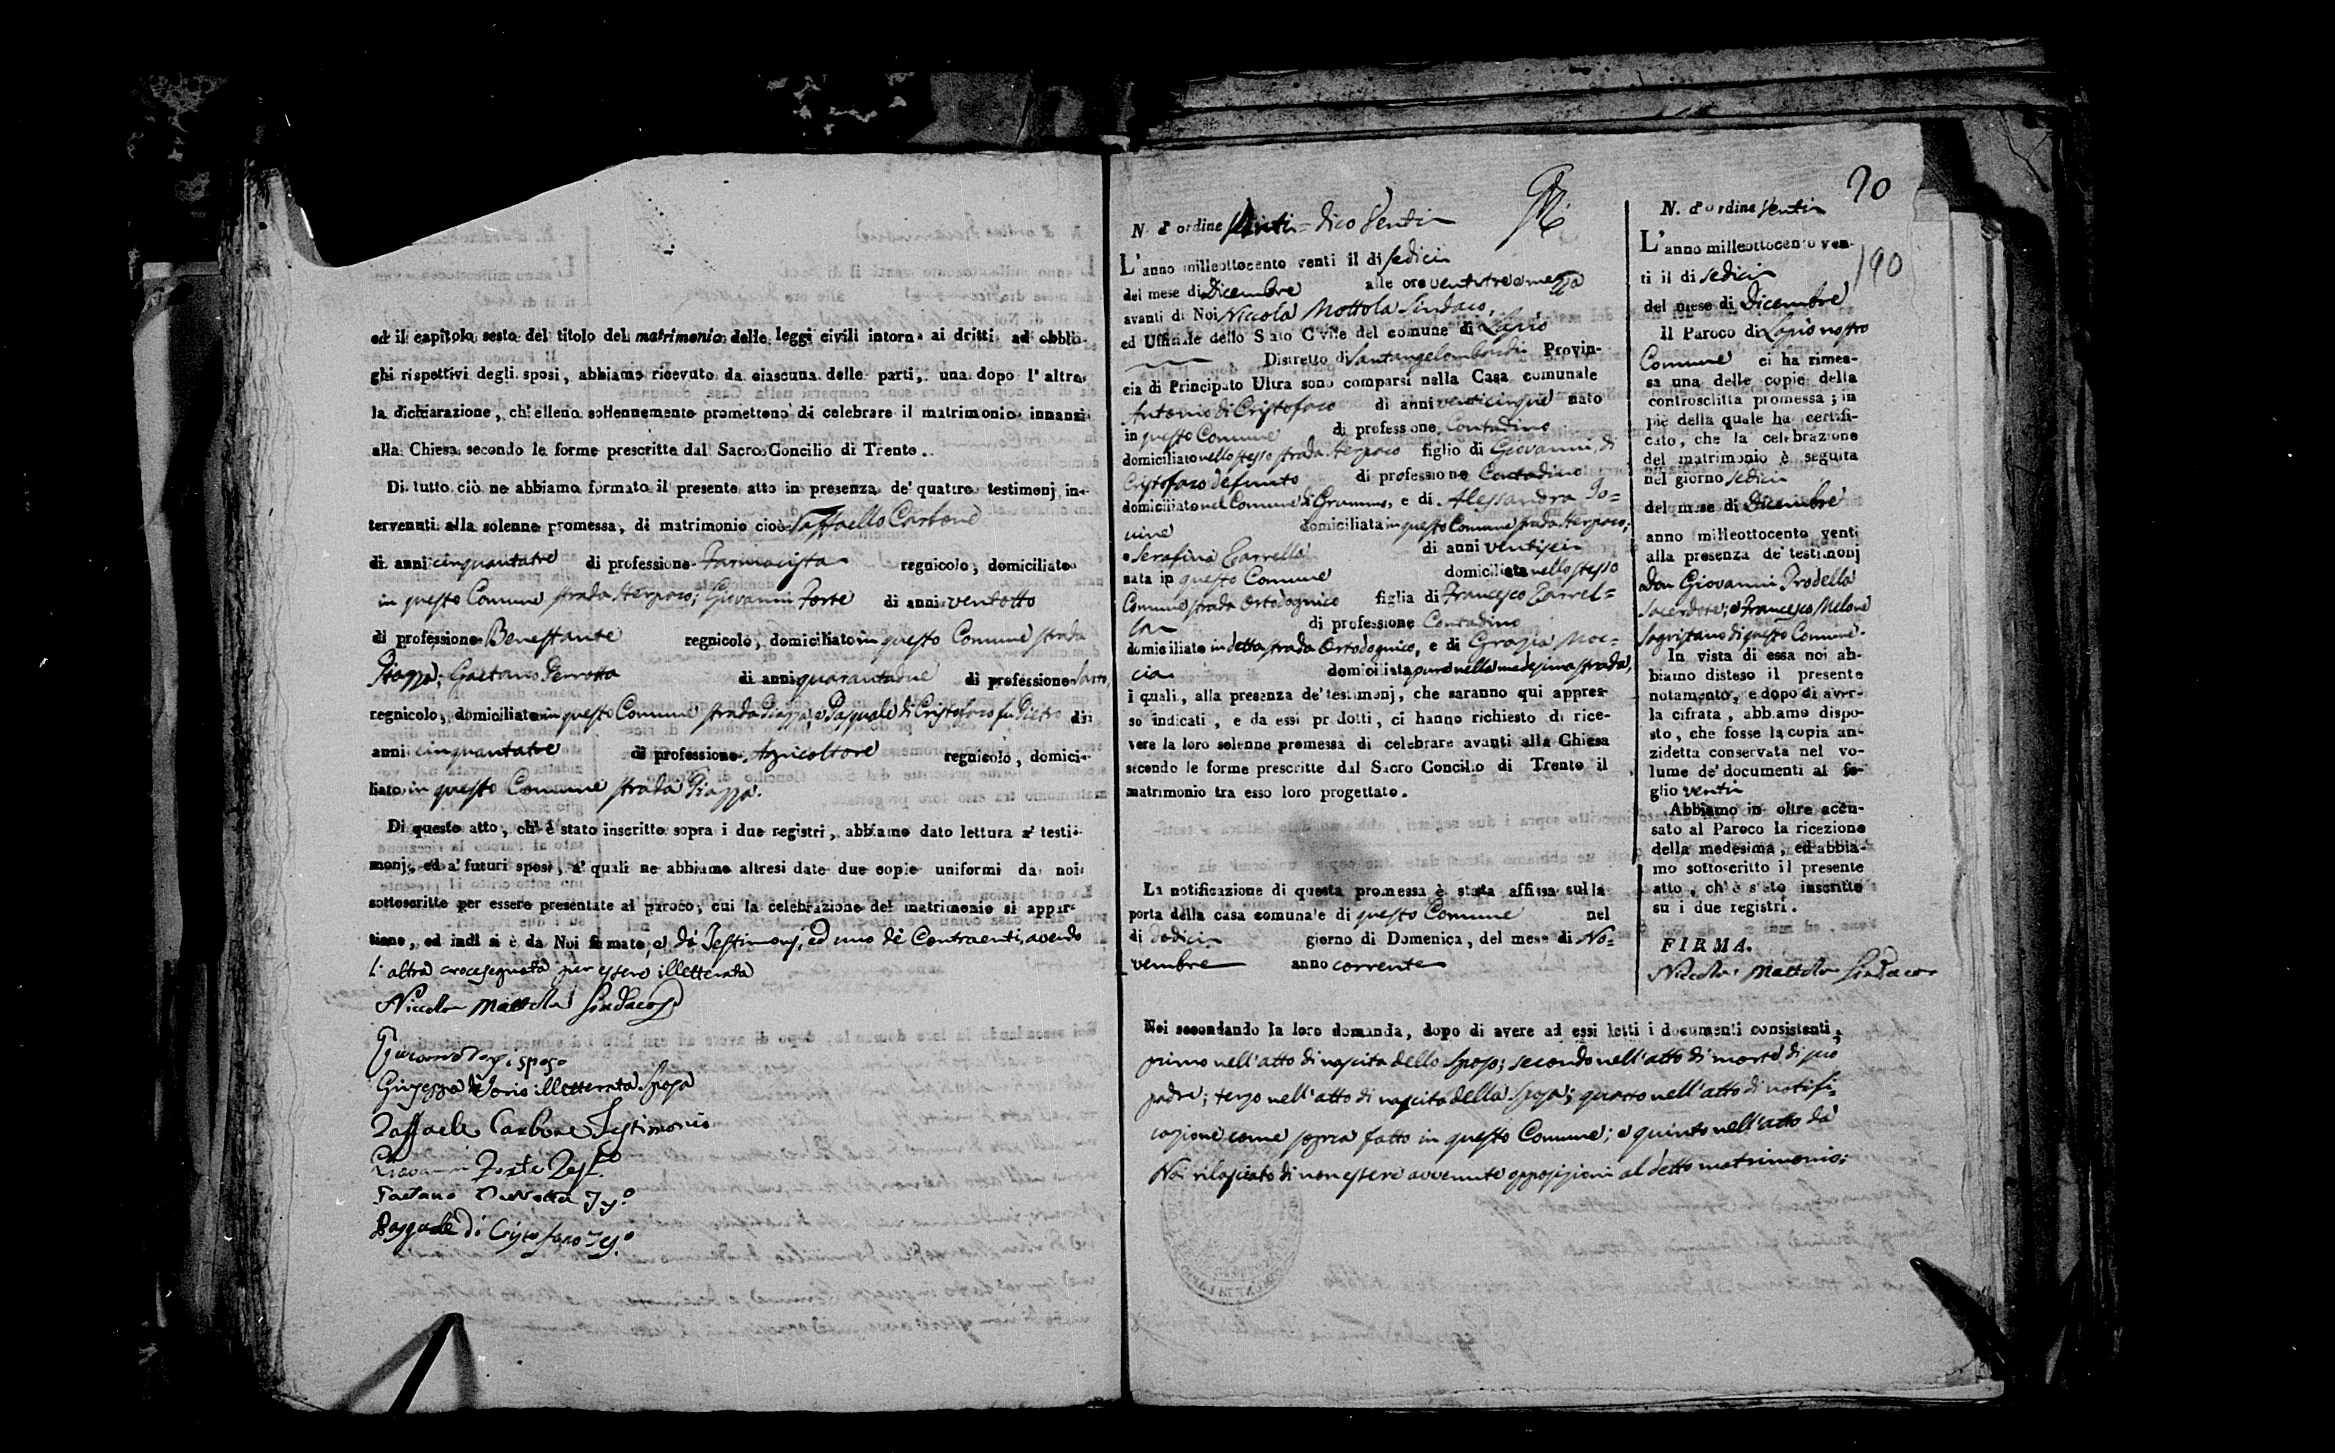 ed il capitolo sesto del titolo del matrimonio delle leggi civili intorno ai dritti, ed obbli-
ghi rispettivi degli sposi, abbiamo ricevuto da ciascuna delle parti, una dopo l'altra
la dichiarazione, ch'elleno sollennemente promettono di celebrare il matrimonio innanzi
alla Chiesa secondo le forme prescritte dal Sacro Concilio di Trento.
Di tutto ciò ne abbiamo formato il presente atto in presenza de' quattro testimonj in-
tervenuti alla solenne promessa, di matrimonio cioè Raffaello Carbone
di anni cinquantatre di professione Farmacista regnicolo, domiciliato
in questo Comune strada Sterparo; Giovanni Forte di anni ventotto
di professione Benestante regnicolo, domiciliato in questo Comune strada
Piazza; Gaetano Perrotta di anni quarantadue di professione Sarto,
regnicolo, domiciliato in questo Comune strada Piazza, e Pasquale di Cristofaro fu Pietro di
anni cinquantatre di professione Agricoltore regnicolo, domici-
liato in questo Comune strada Piazza.
Di questo atto, ch'è stato inscritto sopra i due registri, abbiamo dato lettura a' testi-
monj, ed a' futuri sposi, a' quali ne abbiamo altresi date due copie uniformi da noi
sottoscritte per essere presentate al paroco, cui la celebrazione del matrimonio si appar-
tiene, ed indi si è da Noi firmato, e da' Testimonj, ed uno de' Contraenti, avendo
l'altra crocesegnata per essere illetterata
Niccola Mottola Sindaco
Giovanno sposo
Giuseppa de Iorio illetterata sposa
Raffaele Carbone Testimonio
Giovanni Forte Test.o
Gaetano Perrotta Tes.o
Pasquale di Cristofaro Tes.o
20
190
N. d'ordine Venti = dico Venti
L'anno milleottocento venti il di sedici
del mese di Dicembre alle ore ventitre e mezza
avanti di Noi Niccola Mottola Sindaco,
ed Uffiziale dello Stato Civile del comune di Lapio
Distretto di Santangelombardi Provin-
cia di Principato Ultra sono comparsi nella Casa comunale
Antonio di Cristofaro di anni venticinque nato
in questo Comune di professione Contadino
domiciliato nello stesso strada Sterparo figlio di Giovanni di
Cristofaro defunto di professione Contadino
domiciliato nel Comune di Grumo, e di Alessandra Io=
nine domiciliata in questo Comune strada Sterparo;
e Serafina Carrella di anni ventisei
nata in questo Comune domiciliata nello stesso
Comune strada Ortodognico figlia di Francesco Carrel=
la di professione Contadino
domiciliato in detta strada Ortodognico, e di Grazia Moc=
cia domiciliata pure nella medesima strada,
i quali, alla presenza de' testimonj, che saranno qui appres-
so indicati, e da essi prodotti, ci hanno richiesto di rice-
vere la loro solenne promessa di celebrare avanti alla Chiesa
secondo le forme prescritte dal Sacro Concilio di Trento il
matrimonio tra esso loro progettato.
La notificazione di questa promessa è stata affissa sulla
porta della casa comunale di questo Comune nel
di dodici giorno di Domenica, del mese di No=
vembre anno corrente
Noi secondando la loro domanda, dopo di avere ad essi letti i documenti consistenti,
primo nell'atto di nascita dello sposo; secondo nell'atto di morte di suo
padre; terzo nell'atto di nascita della sposa; quarto nell'atto di notifi=
cazione come sopra fatto in questo Comune; e quinto nell'atto da
Noi rilasciato di non essere avvenute opposizioni al detto matrimonio;
N. d'ordine Venti
L'anno milleottocento ven-
ti il di sedici
del mese di Dicembre
Il Paroco di Lapio nostro
Comune ci ha rimes-
sa una delle copie della
controscritta promessa; in
piè della quale ha certifi-
cato, che la celebrazione
del matrimonio è seguita
nel giorno sedici
del mese di Dicembre
anno milleottocento venti
alla presenza de' testimonj
Don Giovanni Trodella
Sacerdote; e Francesco Melone
Sagristano di questo Comune.
In vista di essa noi ab-
biamo disteso il presente
notamento, e dopo di aver-
la cifrata, abbiamo dispo-
sto, che fosse la copia an-
zidetta conservata nel vo-
lume de' documenti al fo-
glio venti
Abbiamo in oltre accu-
sato al Paroco la ricezione
della medesima, ed abbia-
mo sottoscritto il presente
atto, ch'è stato inscritto
su i due registri.
FIRMA.
Niccola Mottola Sindaco